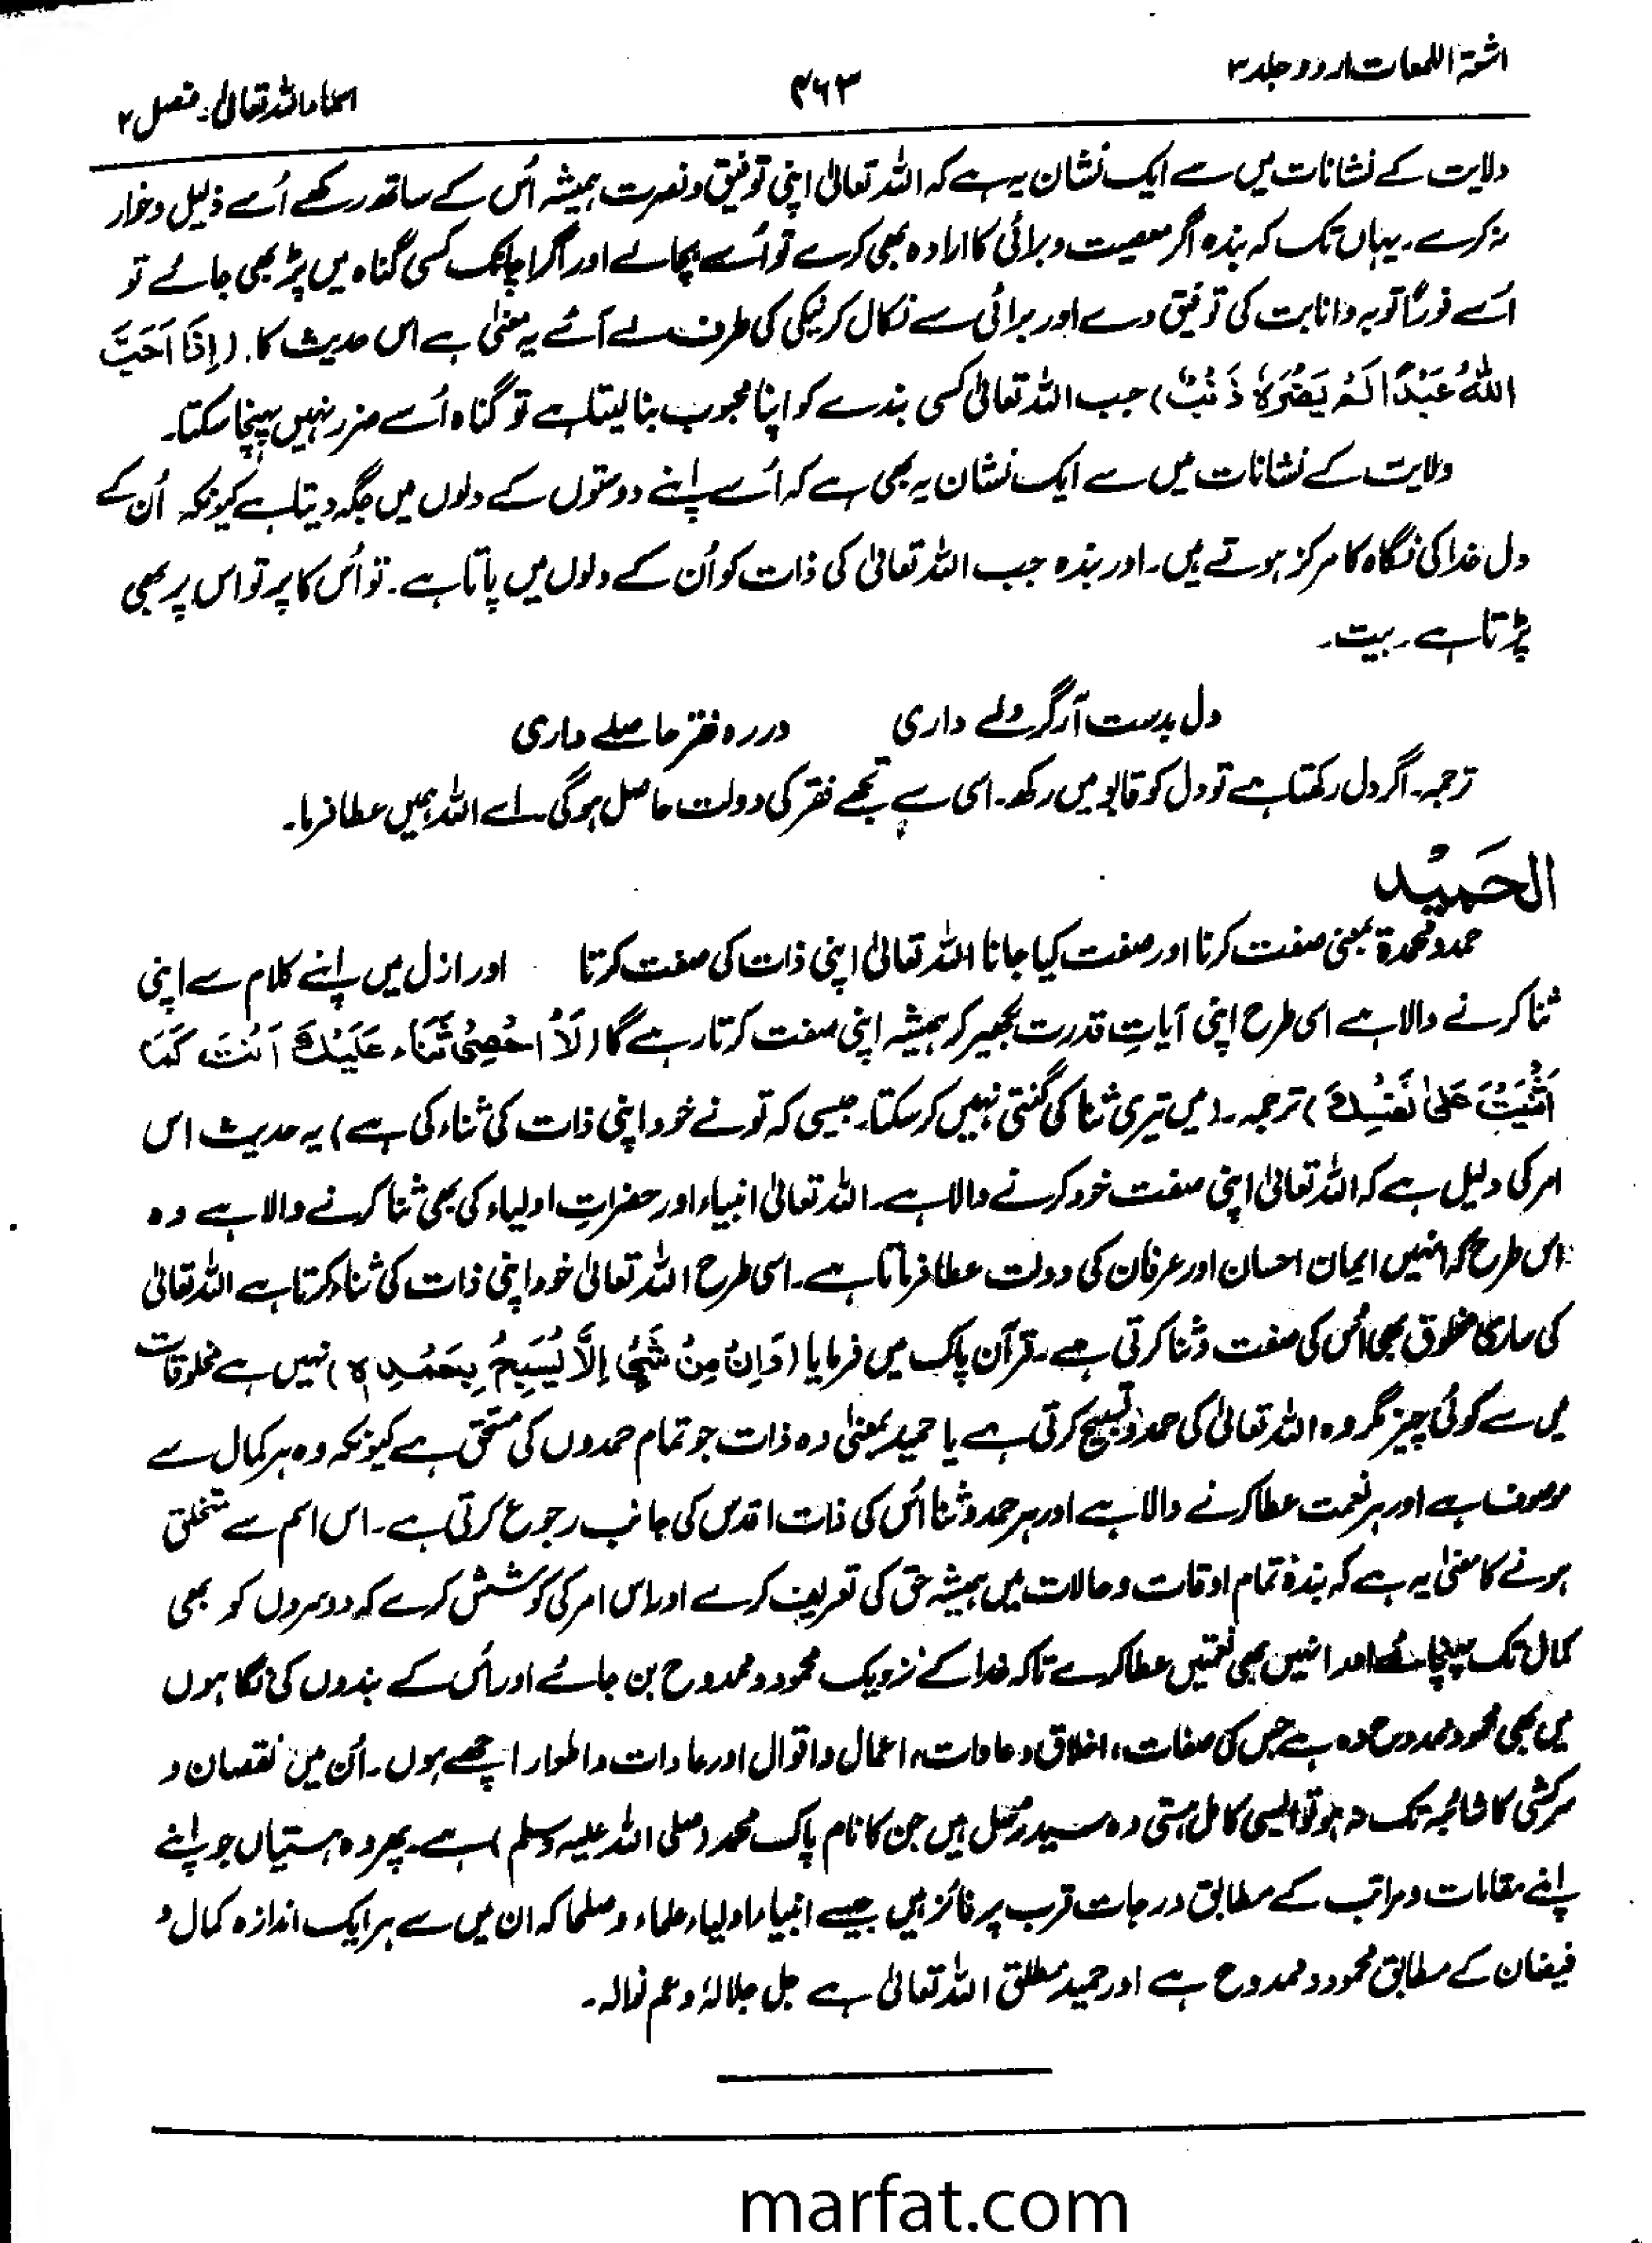 اشعۃ اللمعات اردو جلد ۳
۴۶۳
اسماء اللہ تعالیٰ۔ فصل ۲
ولایت کے نشانات میں سے ایک نشان یہ ہے کہ اللہ تعالیٰ اپنی توفیق و نصرت ہمیشہ اُس کے ساتھ رکھے اُسے ذلیل و خوار
نہ کرے۔ یہاں تک کہ بندہ اگر معصیت و برائی کا ارادہ بھی کرے تو اُسے بچا لے اور اگر اچانک کسی گناہ میں پڑ بھی جائے تو
اُسے فورًا توبہ و انابت کی توفیق دے اور برائی سے نکال کر نیکی کی طرف لے آئے یہ معنیٰ ہے اس حدیث کا۔ (اِذَا اَحَبَّ
اللّٰہُ عَبْدًا لَمْ یَضُرَّہٗ ذَنْبٌ) جب اللہ تعالیٰ کسی بندے کو اپنا محبوب بنا لیتا ہے تو گناہ اُسے ضرر نہیں پہنچا سکتا۔
ولایت کے نشانات میں سے ایک نشان یہ بھی ہے کہ اُسے اپنے دوستوں کے دلوں میں جگہ دیتا ہے کیونکہ اُن کے
دل خدا کی نگاہ کا مرکز ہوتے ہیں۔ اور بندہ جب اللہ تعالیٰ کی ذات کو اُن کے دلوں میں پاتا ہے۔ تو اُس کا پر تو اس پر بھی
پڑتا ہے۔ بیت۔
دل بدست آر گر دلے داری درره فقر حاصلے داری
ترجمہ۔ اگر دل رکھتا ہے تو دل کو قابو میں رکھ۔ اسی سے تجھے فقر کی دولت حاصل ہوگی۔ اے اللہ ہمیں عطا فرما۔
الحَمِیْد
حمد و محمدۃ بمعنی صفت کرنا اور صفت کیا جانا اللہ تعالیٰ اپنی ذات کی صفت کرتا اور ازل میں اپنے کلام سے اپنی
ثنا کرنے والا ہے اسی طرح اپنی آیاتِ قدرت بکھیر کر ہمیشہ اپنی صفت کرتا رہے گا (لَاۤ اُحْصِیْ ثَنَاءً عَلَیْکَ اَنْتَ کَمَا
اَثْنَیْتَ عَلیٰ نَفْسِکَ) ترجمہ۔ (میں تیری ثنا کی گنتی نہیں کر سکتا۔ جیسی کہ تو نے خود اپنی ذات کی ثناء کی ہے) یہ حدیث اس
امر کی دلیل ہے کہ اللہ تعالیٰ اپنی صفت خود کرنے والا ہے۔ اللہ تعالیٰ انبیاء اور حضراتِ اولیاء کی بھی ثنا کرنے والا ہے وہ
اس طرح کہ انہیں ایمان احسان اور عرفان کی دولت عطا فرماتا ہے۔ اسی طرح اللہ تعالیٰ خود اپنی ذات کی ثناء کرتا ہے اللہ تعالیٰ
کی ساری مخلوق بھی اُس کی صفت و ثنا کرتی ہے۔ قرآن پاک میں فرمایا (وَاِنْ مِنْ شَیْءٍ اِلَّا یُسَبِّحُ بِحَمْدِہٖ) نہیں ہے مخلوقات
میں سے کوئی چیز مگر وہ اللہ تعالیٰ کی حمد و تسبیح کرتی ہے یا حمید بمعنیٰ وہ ذات جو تمام حمدوں کی مستحق ہے کیونکہ وہ ہر کمال سے
موصوف ہے اور ہر نعمت عطا کرنے والا ہے اور ہر حمد و ثنا اُس کی ذات اقدس کی جانب رجوع کرتی ہے۔ اس اسم سے متخلق
ہونے کا معنیٰ یہ ہے کہ بندہ تمام اوقات و حالات میں ہمیشہ حق کی تعریف کرے اور اس امر کی کوشش کرے کہ دوسروں کو بھی
کمال تک پہنچائے اور انہیں بھی نعمتیں عطا کرے تاکہ خدا کے نزدیک محمود و ممدوح بن جائے اور اُس کے بندوں کی نگاہوں
میں بھی محمود ممدوح وہ ہے جس کی صفات، اخلاق و عادات، اعمال و اقوال اور عادات و اطوار اچھے ہوں۔ اُن میں نقصان و
سرکشی کا شائبہ تک نہ ہو تو ایسی کامل ہستی وہ سید رسل ہیں جن کا نام پاک محمد (صلی اللہ علیہ وسلم) ہے۔ پھر وہ ہستیاں جو اپنے
اپنے مقامات و مراتب کے مطابق درجات قرب پر فائز ہیں جیسے انبیاء اولیاء علماء و صلحا کہ ان میں سے ہر ایک اندازہ کمال و
فیضان کے مطابق محمود و ممدوح ہے اور حمید مطلق اللہ تعالیٰ ہے جل جلالہٗ و عم نوالہ۔
marfat.com